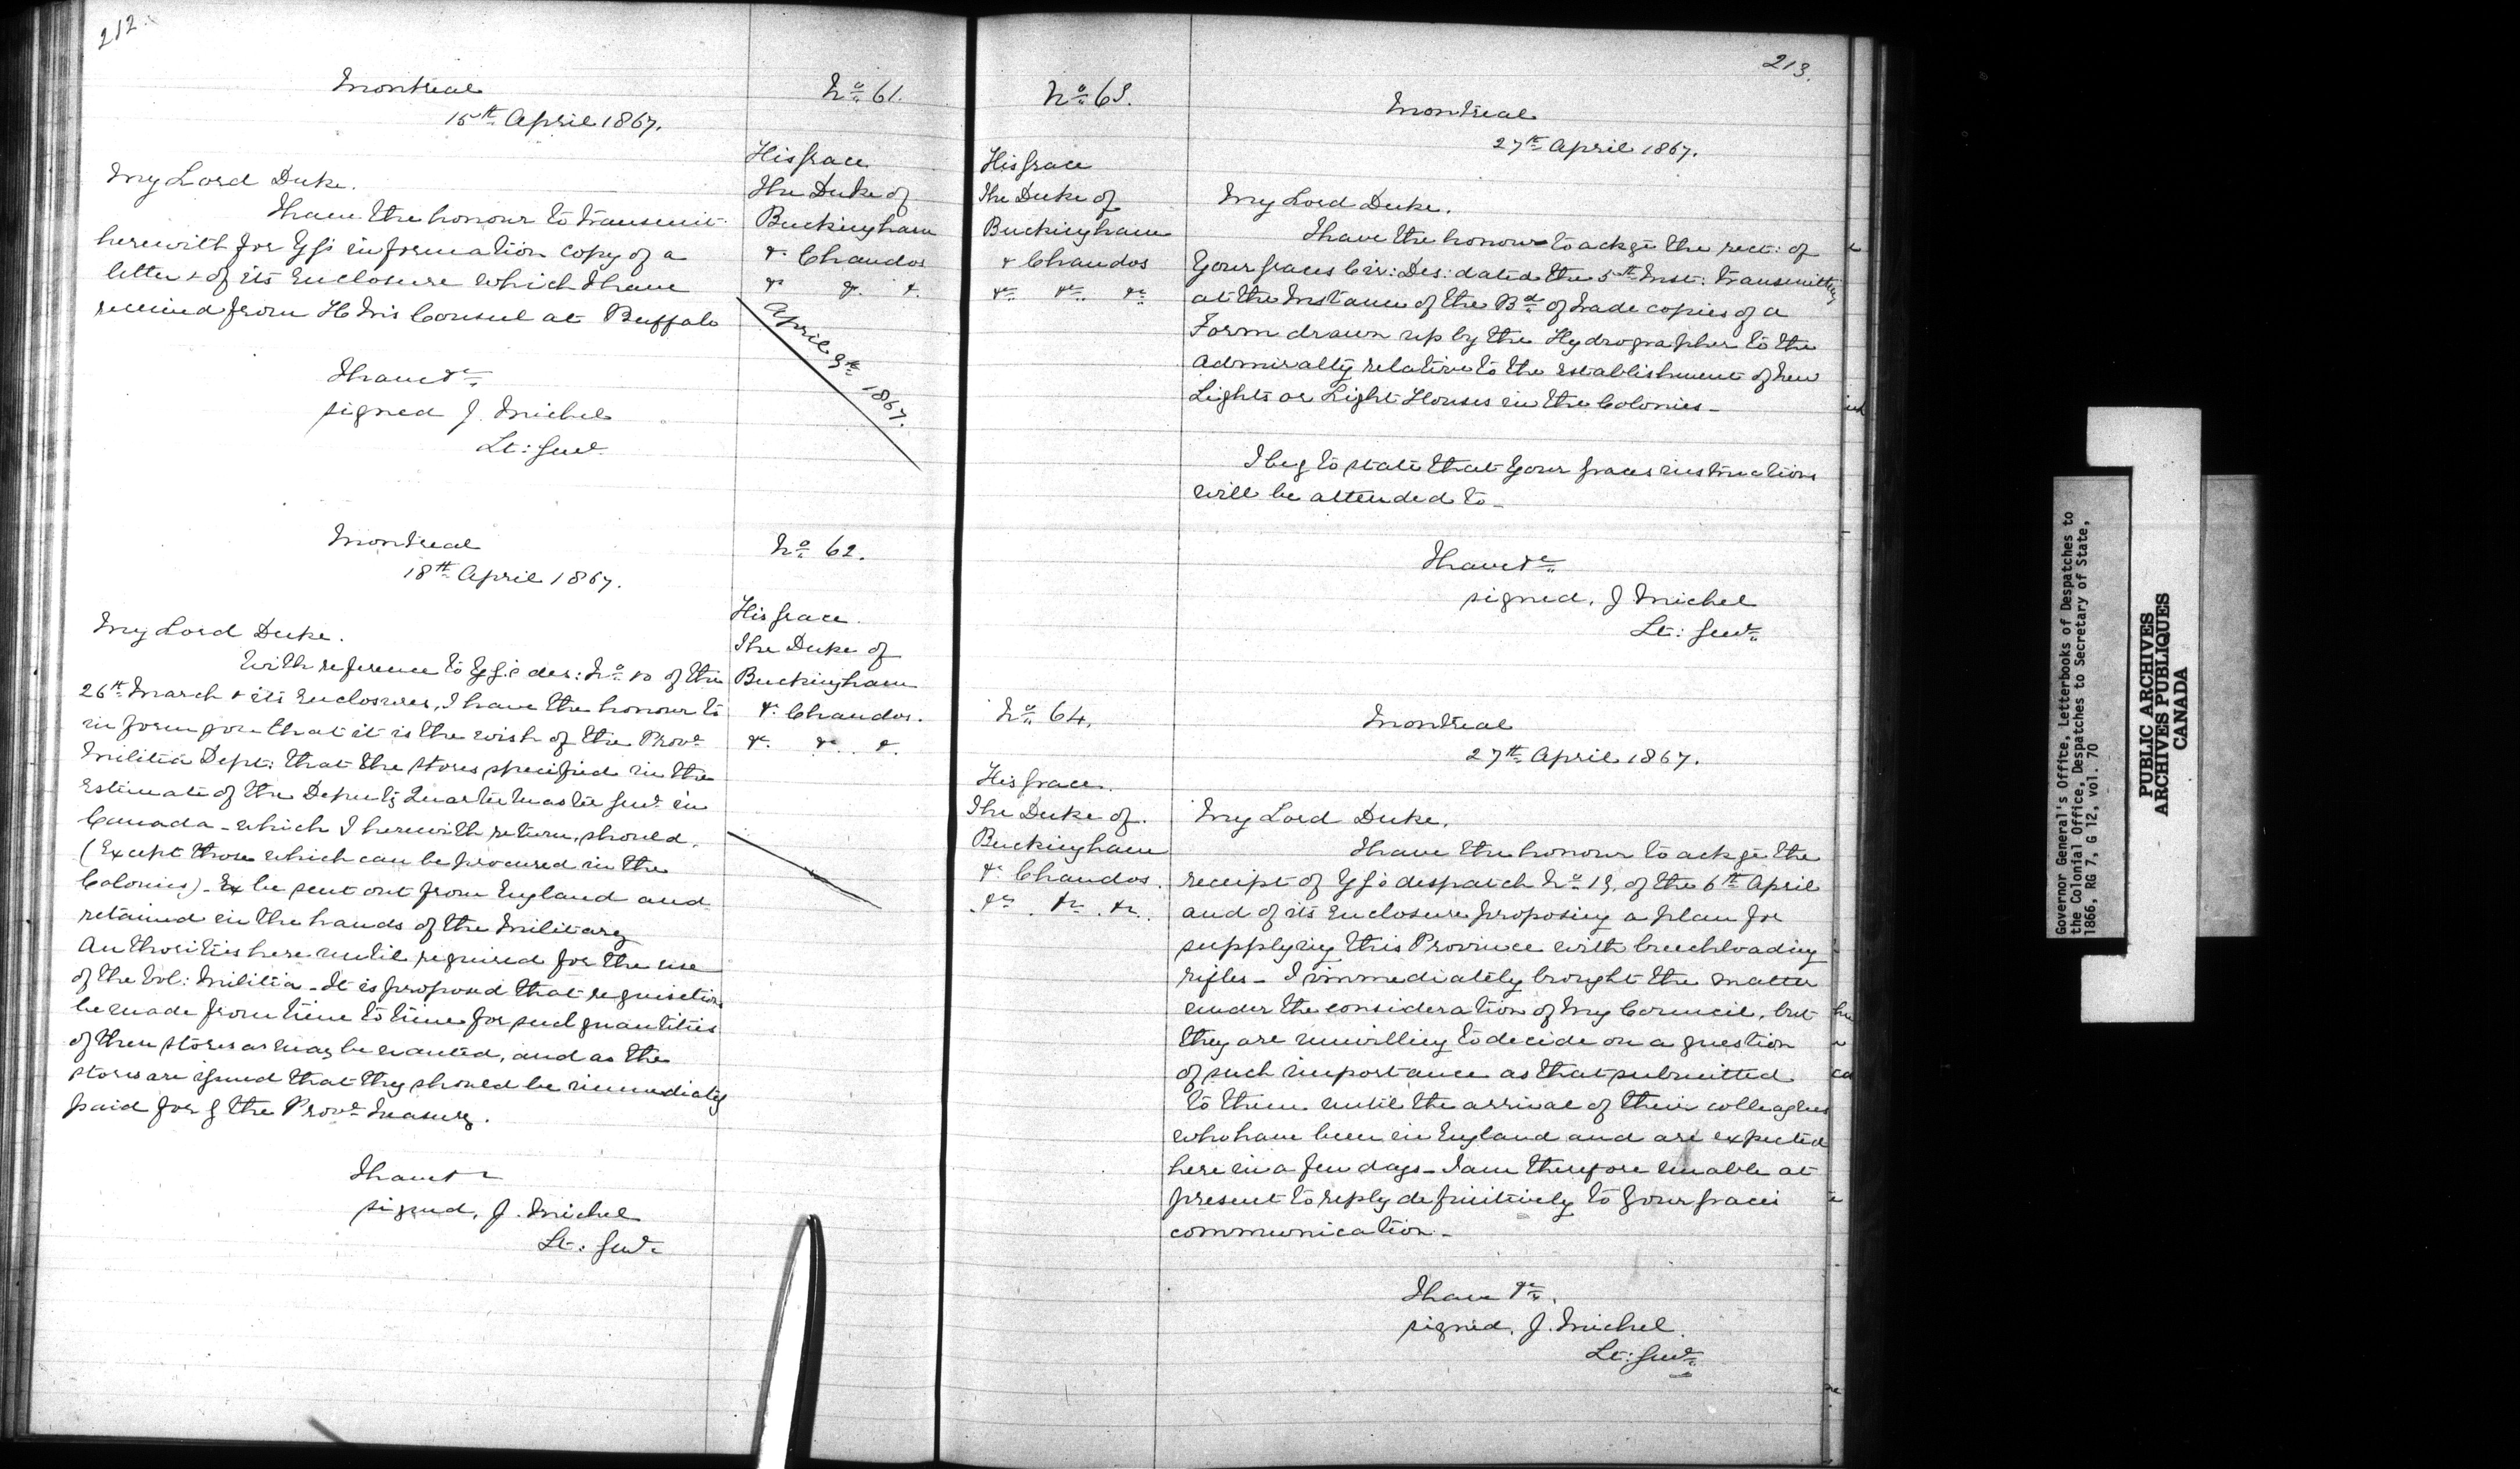 212.
Montreal
15th April 1867.
No 61.
His Grace
The Duke of
Buckingham
& Chandos
&c &c. &c.
April 9th 1867.
My Lord Duke.
I have the honour to transmit
herewith for YG's information copy of a
letter & of its Enclosure which I have
received from H Ms Consul at Buffalo
I have &c
signed J. Michel
Lt: Genl.
Montreal
18th April 1867.
No 62.
His Grace.
The Duke of
Buckingham
& Chandos.
&c. &c. &c.
My Lord Duke.
With reference to YG's des: No 10 of the
26th March & its Enclosures, I have the honour to
inform you that it is the wish of the Provl
Militia Dept: that the stores specified in the
Estimate of the Deputy Quartermaster Genl in
Canada - which I herewith return, should.
(Except those which can be procured in the
Colonies) - be sent out from England and
retained in the hands of the Military
Authorities here until required for the use
of the Vol: Militia - It is proposed that requisitions
be made from time to time for such quantities
of these stores as may be wanted, and as the
stores are issued that they should be immediately
paid for by the Provl Treasury.
I have &c
signed, J. Michel
Lt: Genl.
213.
No 63.
Montreal
27th April 1867.
His Grace
The Duke of
Buckingham
& Chandos
&c &c &c
My Lord Duke.
I have the honour to ackge the rect: of
Your Graces Cir: Des: dated the 5th Inst: transmitting
at the Instance of the Bd of Trade copies of a
Form drawn up by the Hydrographer to the
Admiralty relative to the establishment of new
Lights or Light Houses in the Colonies -
I beg to state that Your Graces instructions
will be attended to -
I have &c
signed, J Michel
Lt: Genl.
No 64.
Montreal
27th April 1867.
His Grace.
The Duke of.
Buckingham
& Chandos.
&c. &c. &c.
My Lord Duke.
I have the honour to ackge the
receipt of YG's despatch No 19, of the 6th April
and of its Enclosure proposing a plan for
supplying this Province with breechloading
rifles - I immediately brought the matter
under the consideration of my Council, but
they are unwilling to decide on a question
of such importance as that submitted
to them until the arrival of their colleagues
who have been in England and are expected
here in a few days - I am therefore unable at
present to reply definitively to Your Graces
communication -
I have &c.
signed, J. Michel.
Lt: Genl.
Governor General's Office, Letterbooks of Despatches to
the Colonial Office, Despatches to Secretary of State,
1866, RG 7, G 12, vol. 70
PUBLIC ARCHIVES
ARCHIVES PUBLIQUES
CANADA